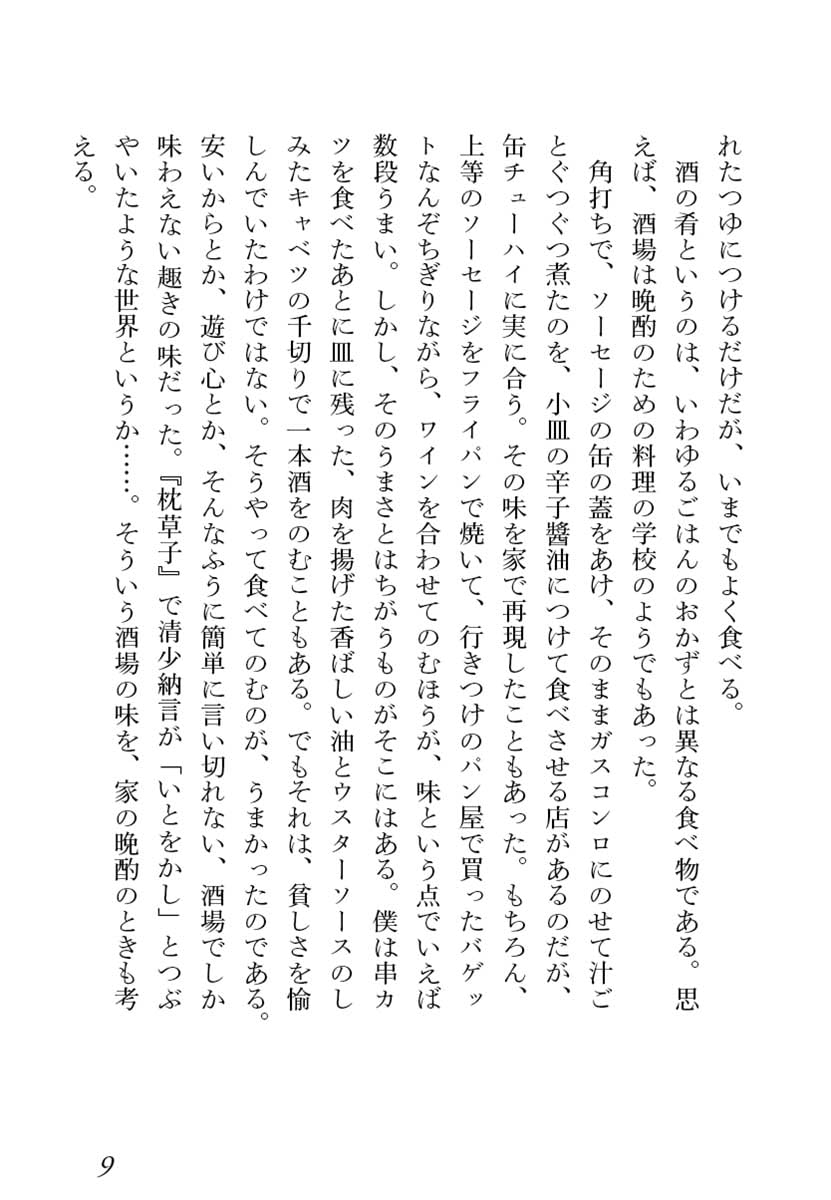 れたつゆにつけるだけだが、いまでもよく食べる。
　酒の肴というのは、いわゆるごはんのおかずとは異なる食べ物である。思
えば、酒場は晩酌のための料理の学校のようでもあった。
　角打ちで、ソーセージの缶の蓋をあけ、そのままガスコンロにのせて汁ご
とぐつぐつ煮たのを、小皿の辛子醬油につけて食べさせる店があるのだが、
缶チューハイに実に合う。その味を家で再現したこともあった。もちろん、
上等のソーセージをフライパンで焼いて、行きつけのパン屋で買ったバゲッ
トなんぞちぎりながら、ワインを合わせてのむほうが、味という点でいえば
数段うまい。しかし、そのうまさとはちがうものがそこにはある。僕は串カ
ツを食べたあとに皿に残った、肉を揚げた香ばしい油とウスターソースのし
みたキャベツの千切りで一本酒をのむこともある。でもそれは、貧しさを愉
しんでいたわけではない。そうやって食べてのむのが、うまかったのである。
安いからとか、遊び心とか、そんなふうに簡単に言い切れない、酒場でしか
味わえない趣きの味だった。『枕草子』で清少納言が「いとをかし」とつぶ
やいたような世界というか……。そういう酒場の味を、家の晩酌のときも考
える。
9